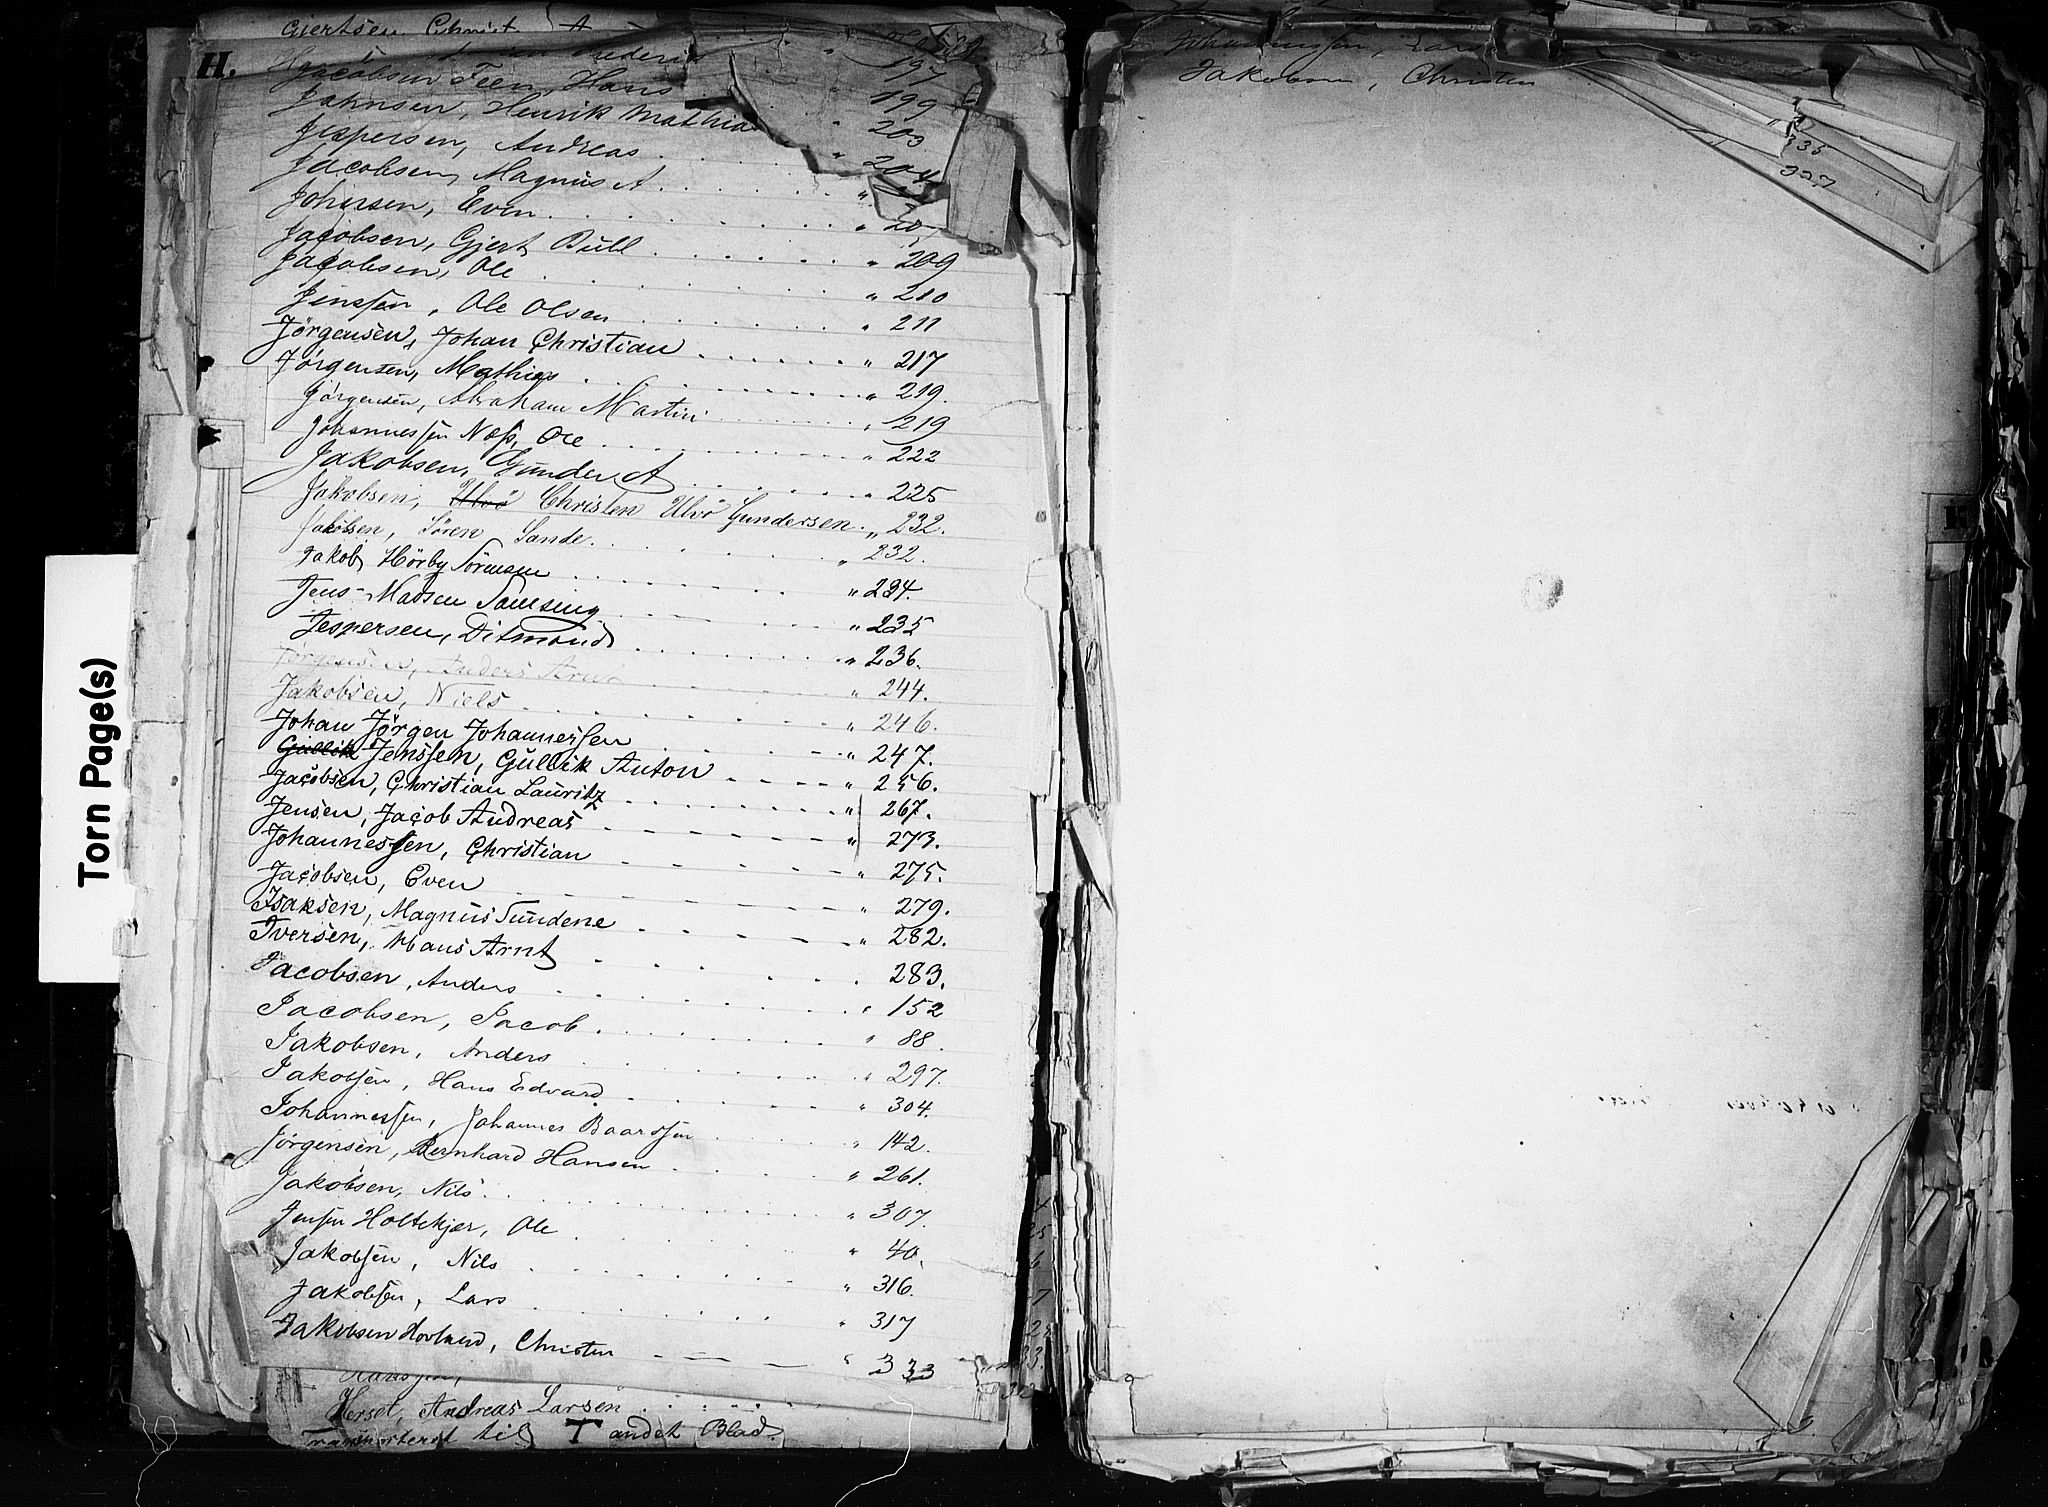 Gjertsen Christ
H.
Jacobsen Feen, Hans 197
Jahnsen, Henrik Mathias " 199
Jespersen, Andreas " 203
Jacobsen, Magnus A " 204
Johnsen, Even "
Jacobsen, Gjert Bull " 209
Jacobsen, Ole " 210
Jenssen, Ole Olsen " 211
Jörgensen, Johan Christian " 217
Jörgensen, Mathias " 219.
Jörgensen, Abraham Martin " 219
Johannessen Næss, Ole " 222
Jakobsen, Gunder A " 225
Jakobsen, Ulvö Christen Ulvö Gundersen " 232.
Jakobsen, Sören Sande " 232.
Jakob Hörby Sörensen " 234.
Jens Madsen Samsing " 235
Jespersen, Ditmand " 236.
Jörgensen, Anders Arnt " 244.
Jakobsen, Niels " 246.
Johan Jörgen Johannessen " 247.
Gullik Jenssen, Gullik Anton " 256.
Jacobsen, Christian Lauritz " 267.
Jensen, Jacob Andreas " 273.
Johannessen, Christian " 275.
Jacobsen, Even " 279.
Isaksen, Magnus Sundene " 282.
Iversen, Hans Arnt 283.
Jacobsen, Anders " 152
Jacobsen, Jacob " 88.
Jakobsen, Anders " 297.
Jakobsen, Hans Edvard " 304.
Johannessen, Johannes Baardsen " 142.
Jörgensen, Bernhard Hansen " 261.
Jakobsen, Nils " 307.
Jensen Holtekjær, Ole " 40.
Jakobsen, Nils " 316.
Jakobsen, Lars " 317
Jakobsen Hovland, Christen " 333
Hansen,
Herset, Andreas Larsen
Transporteret til T andet Blad.
Torn Page(s)
Johannessen, Lars
Jakobsen, Christen
335
327
K